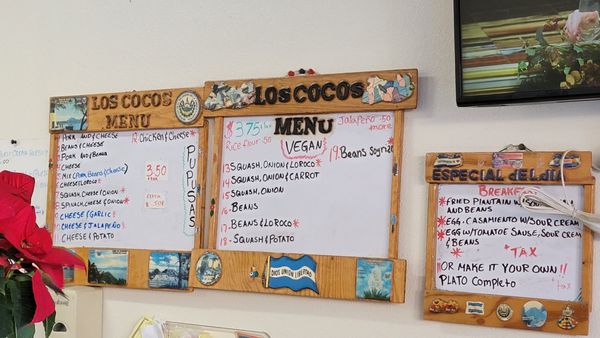 LOS COCOS
MENU
PORK AND CHEESE
BEANS & CHEESE
PORK AND BEANS
CHEESE
MIX (PORK BEANS/CHEESE)
CHEESE & LOROCO
SQUASH, CHEESE & ONION
SPINACH, CHEESE & ONION
CHEESE & GARLIC
CHEESE & JALAPENO
CHEESE & POTATO
12 CHICKEN & CHEESE
3.50
PUPUSAS
LOS COCOS
MENU
$3.75
Rice flour .50
VEGAN
JALAPEÑO .50
more
13 SQUASH, ONION & LOROCO
14 SQUASH, ONION & CARROT
15 SQUASH, ONION
16- BEANS
17- BEANS & LOROCO
18- SQUASH & POTATO
19. BEANS
ESPECIAL DEL DIA
BREAKFAST
FRIED PLAINTAIN W/SOUR CREAM
AND BEANS
EGG. CASAMIENTO W/SOUR CREAM
EGG W/TOMATOE SAUSE, SOUR CREM
& BEANS
*TAX
OR MAKE IT YOUR OWN!!
PLATO COMPLETO
tax
DIOS UNION LIBERTAD